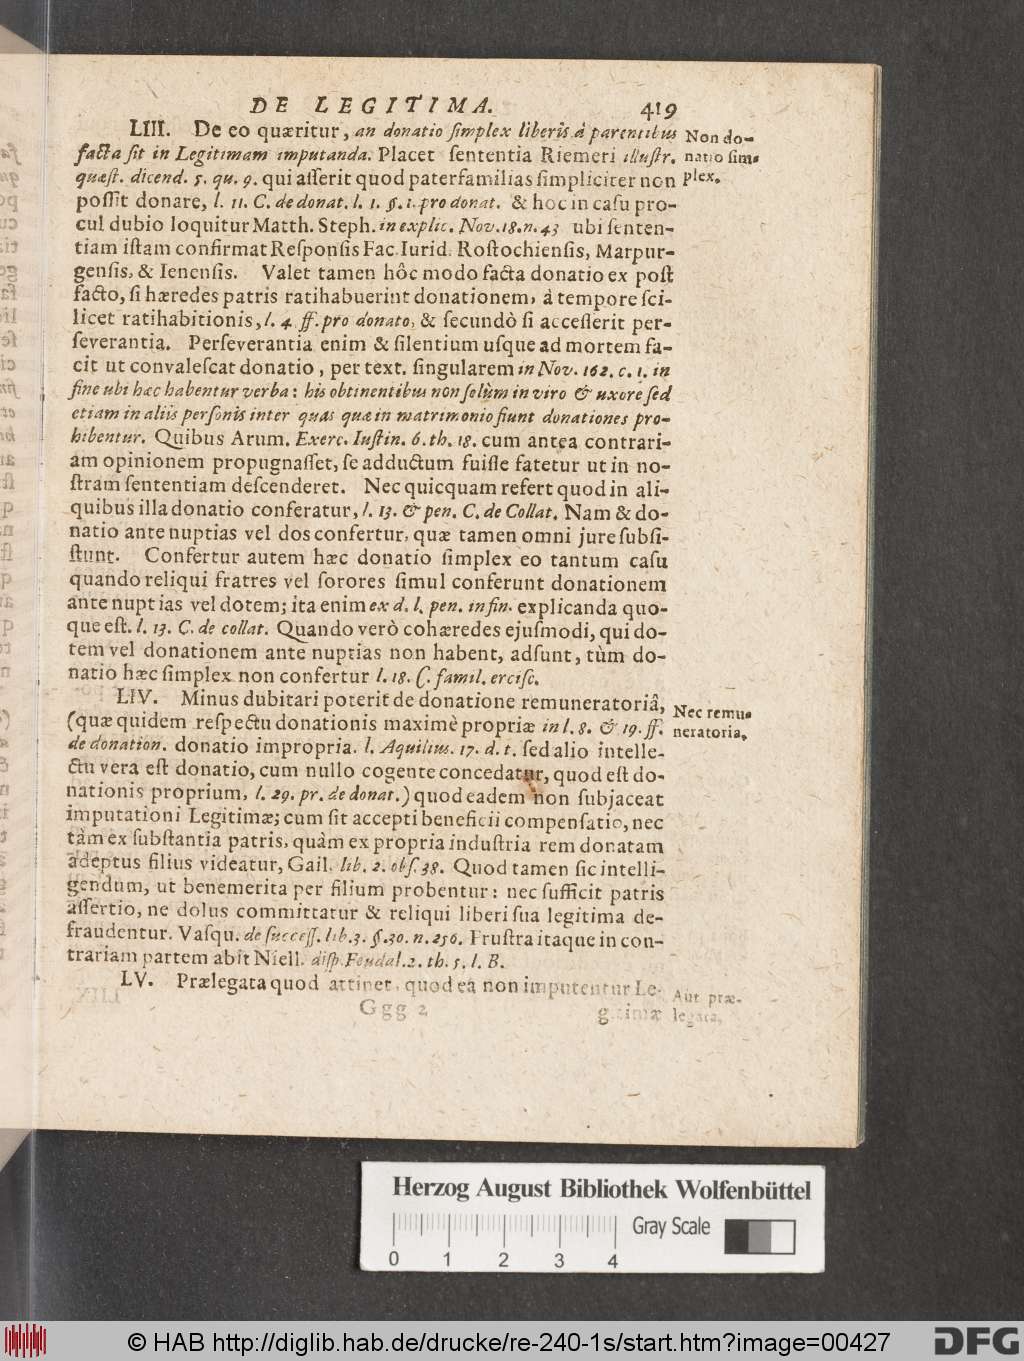 DE LEGITIMA. 419
LIII. De eo quæritur, an donatio ſimplex liberis à parentibus
facta ſit in Legitimam imputanda. Placet ſententia Riemeri illuſtr.
quæſt. dicend. 5. qu. 9. qui aſſerit quod paterfamilias ſimpliciter non
poſſit donare, l. 11. C. de donat. l. 1. §. 1. pro donat. & hoc in caſu pro-
cul dubio loquitur Matth. Steph. in explic. Nov. 18. n. 43 ubi ſenten-
tiam iſtam confirmat Reſponſis Fac. Iurid. Roſtochienſis, Marpur-
genſis, & Ienenſis. Valet tamen hôc modo facta donatio ex poſt
facto, ſi hæredes patris ratihabuerint donationem, à tempore ſci-
licet ratihabitionis, l. 4. ff. pro donato, & ſecundò ſi acceſſerit per-
ſeverantia. Perſeverantia enim & ſilentium uſque ad mortem fa-
cit ut convaleſcat donatio, per text. ſingularem in Nov. 162. c. 1. in
fine ubi hæc habentur verba: his obtinentibus non ſolùm in viro & uxore ſed
etiam in aliis perſonis inter quas quæ in matrimonio fiunt donationes pro-
hibentur. Quibus Arum. Exerc. Iuſtin. 6. th. 18. cum antea contrari-
am opinionem propugnaſſet, ſe adductum fuiſſe fatetur ut in no-
ſtram ſententiam deſcenderet. Nec quicquam refert quod in ali-
quibus illa donatio conferatur, l. 13. & pen. C. de Collat. Nam & do-
natio ante nuptias vel dos confertur, quæ tamen omni jure ſubſi-
ſtunt. Confertur autem hæc donatio ſimplex eo tantum caſu
quando reliqui fratres vel ſorores ſimul conferunt donationem
ante nuptias vel dotem; ita enim ex d. l. pen. in fin. explicanda quo-
que eſt. l. 13. C. de collat. Quando verò cohæredes ejuſmodi, qui do-
tem vel donationem ante nuptias non habent, adſunt, tùm do-
natio hæc ſimplex non confertur l. 18. C. famil. erciſc.
LIV. Minus dubitari poterit de donatione remuneratoriâ,
(quæ quidem reſpectu donationis maximè propriæ in l. 8. & 19. ff.
de donation. donatio impropria. l. Aquilius. 17. d. t. ſed alio intelle-
ctu vera eſt donatio, cum nullo cogente concedatur, quod eſt do-
nationis proprium, l. 29. pr. de donat.) quod eadem non ſubjaceat
imputationi Legitimæ; cum ſit accepti beneficii compenſatio, nec
tàm ex ſubſtantia patris, quàm ex propria induſtria rem donatam
adeptus filius videatur, Gail. lib. 2. obſ. 38. Quod tamen ſic intelli-
gendum, ut benemerita per filium probentur: nec ſufficit patris
aſſertio, ne dolus committatur & reliqui liberi ſua legitima de-
fraudentur. Vaſqu. de ſucceſſ. lib. 3. §. 30. n. 256. Fruſtra itaque in con-
trariam partem abit Niell. diſp. Feudal. 2. th. 5. l. B.
LV. Prælegata quod attinet, quod ea non imputentur Le-
Ggg 2 gitimæ
Non do-
natio ſim-
plex.
Nec remu-
neratoria.
Aut præ-
legata.
Herzog August Bibliothek Wolfenbüttel
Gray Scale
0 1 2 3 4
© HAB http://diglib.hab.de/drucke/re-240-1s/start.htm?image=00427
DFG